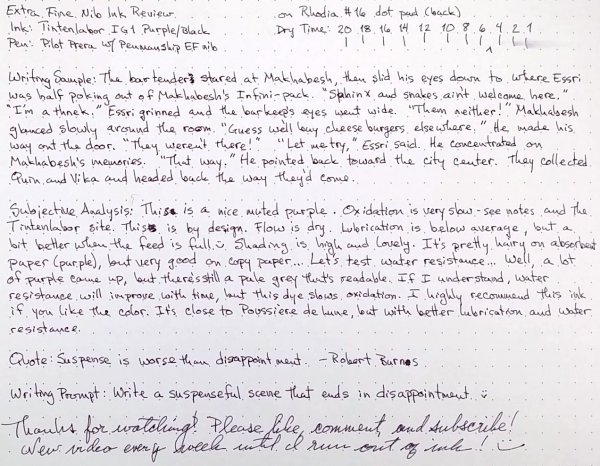 Extra Fine Nib Ink Review on Rhodia #16 dot pad (back)
Ink: Tintenlabor IG1 Purple/Black Dry Time: 20 18 16 14 12 10 8 6 4 2 1
Pen: Pilot Prera w/ Penmanship EF nib
Writing Sample: The bartender stared at Makhabesh, then slid his eyes down to where Essri
was half poking out of Makhabesh's Infini-pack. "Sphinx and snakes ain't welcome here."
"I'm a threk." Essri grinned and the barkeep's eyes went wide. "Them neither!" Makhabesh
glanced slowly around the room. "Guess we'll buy cheese burgers elsewhere." He made his
way out the door. "They weren't there!" "Let me try," Essri said. He concentrated on
Makhabesh's memories. "That way." He pointed back toward the city center. They collected
Quin and Vika and headed back the way they'd come.
Subjective Analysis: This is a nice muted purple. Oxidation is very slow - see notes and the
Tintenlabor site. This is by design. Flow is dry. Lubrication is below average, but a
bit better when the feed is full. Shading is high and lovely. It's pretty hairy on absorbent
paper (purple), but very good on copy paper... Let's test water resistance... Well, a lot
of purple came up, but there's still a pale grey that's readable. If I understand, water
resistance will improve with time, but this dye slows oxidation. I highly recommend this ink
if you like the color. It's close to Poussière de Lune, but with better lubrication and water
resistance.
Quote: Suspense is worse than disappointment. - Robert Burns
Writing Prompt: Write a suspenseful scene that ends in disappointment.
Thanks for watching! Please like, comment, and subscribe!
New video every week until I run out of ink!